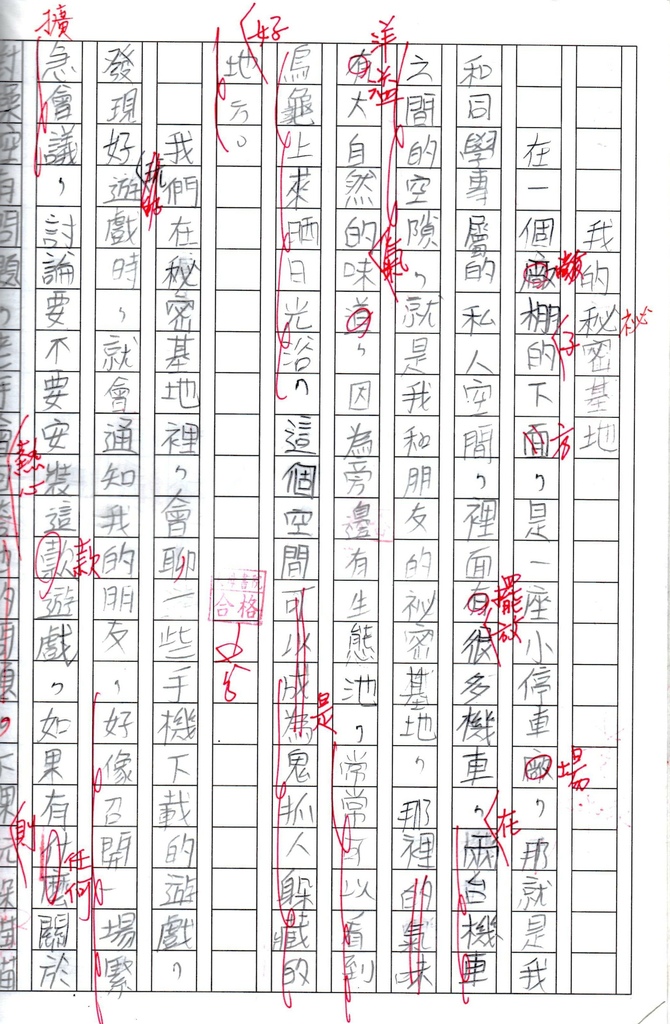 我的秘密基地
祕
在一個廠棚的下面，是一座小停車廠，那就是我
子
方
場
和同學專屬的私人空間，裡面有很多機車，兩台機車
擺放
在
之間的空隙，就是我和朋友的祕密基地，那裡的氣味
洋溢
有大自然的味道，因為旁邊有生態池，常常可以看到
氣
烏龜上來晒日光浴，這個空間可以成為鬼抓人躲藏的
是
好
地方。
合格
我們在秘密基地裡，會聊一些手機下載的遊戲，
發現好遊戲時，就會通知我的朋友，好像召開一場緊
擴
急會議，討論要不要安裝這款遊戲，如果有什麼關於
款
任何
熱心
則